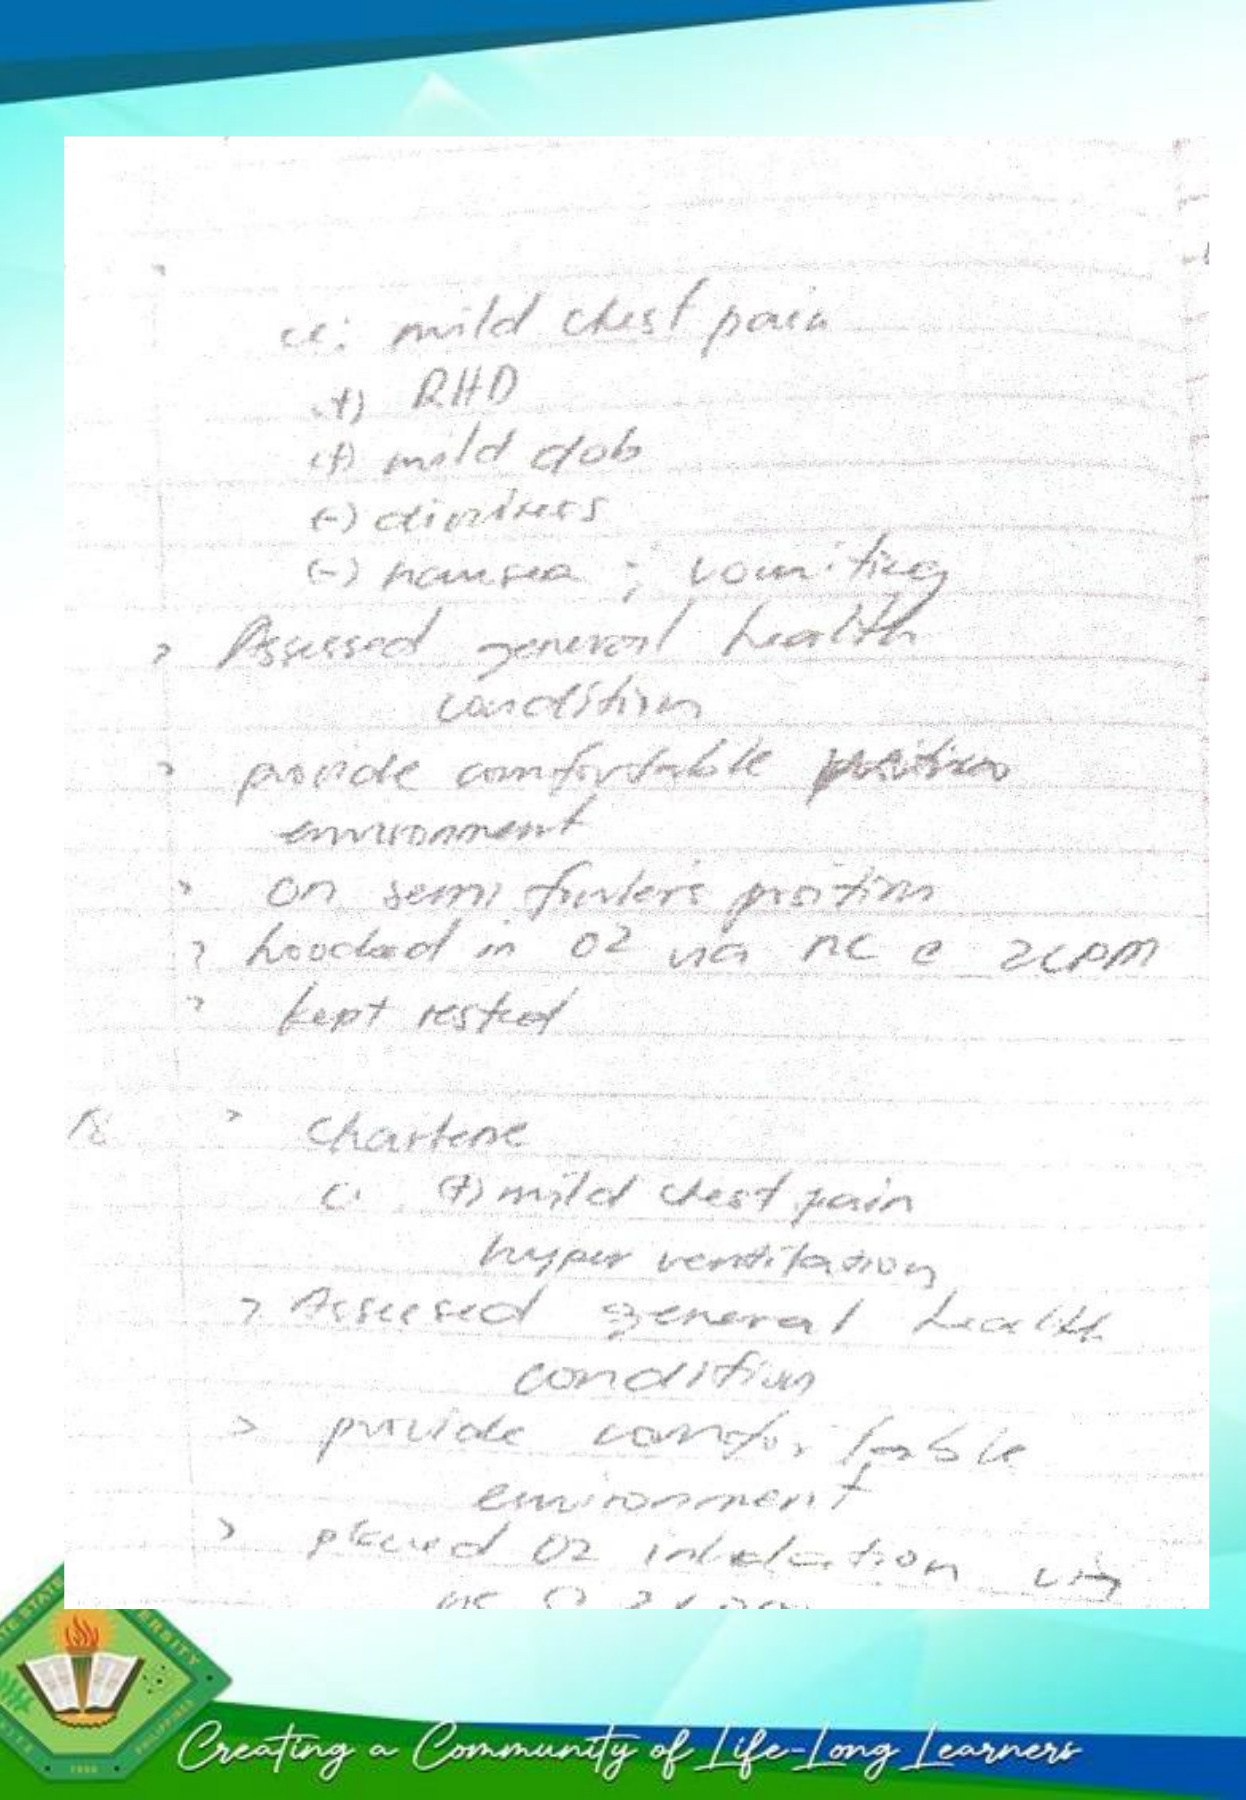 cc: mild chest pain
(+) RHD
(+) mild dob
(-) dizziness
(-) nausea ; vomiting
> Assessed general health
condition
> provide comfortable
environment
> on semi fowler's position
> hoocked in O2 via NC @ 2LPM
> kept rested
> Charlene
(+) mild chest pain
hyper ventilation
> Assessed general health
condition
> provide comfortable
environment
> placed O2 inhalation via
Creating a Community of Life-Long Learners